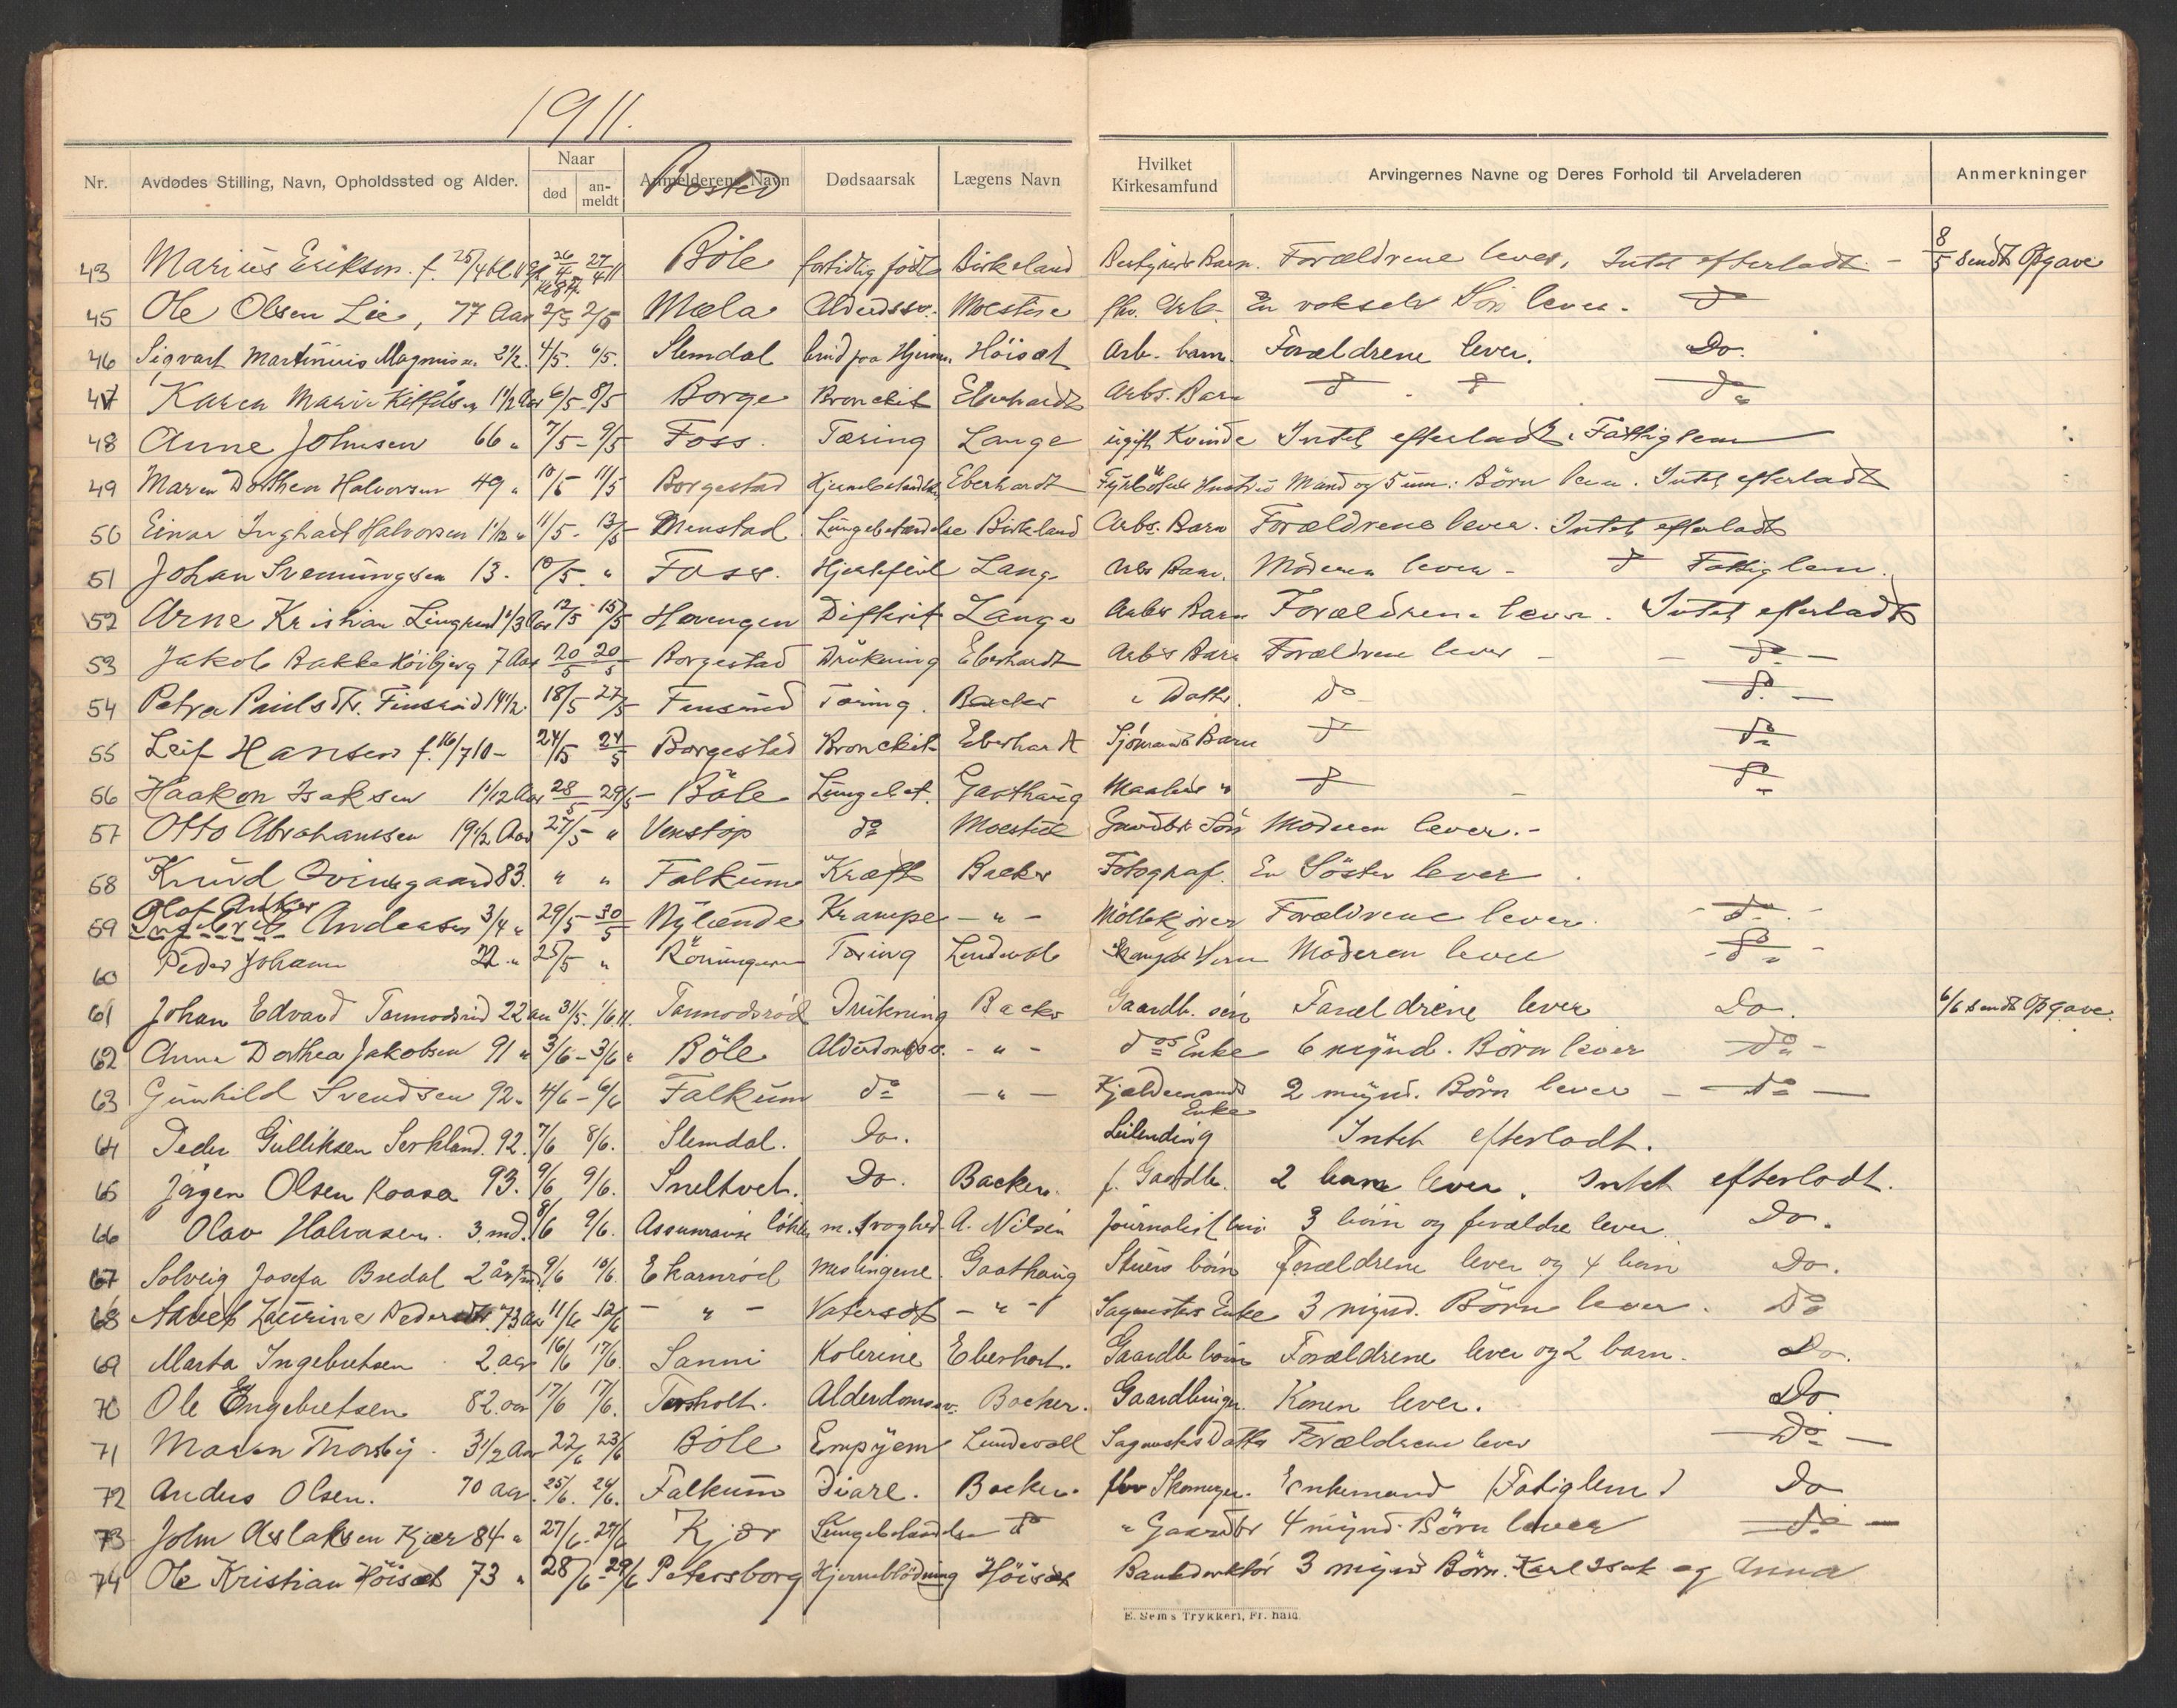 1911.
Nr. Avdødes Stilling, Navn, Opholdssted og Alder. Naar død an-meldt Anmelderens Navn Bosted Dødsaarsak Lægens Navn Hvilket Kirkesamfund Arvingernes Navne og Deres Forhold til Arveladeren Anmerkninger
43 Marius Eriksen f. 25/4 26/4 27/4 Böle fortidlig födt Birkeland Barn. Forældrene lever, Intet efterladt - 8/5 sendt Opgave
45 Ole Olsen Lie, 77 Aar 2/5 2/5 Mæla Alderdssv. Moestue fhv. Arb. En voksen Sön lever. do
46 Sigvart Martinius Magnus 2 1/2. 4/5. 6/5. Slemdal Höisæt Arb. barn. Forældrene lever. Do.
47 Karen Marie 1 1/2 Aar 6/5 - 8/5 Borge Bronckit Eberhardt Arbs. Barn do do do
48 Anne Johnsen 66 " 7/5 - 9/5 Foss. Tæring Lange ugift Kvinde Intet efterladt. Fattiglem
49 Maren Dorthea Halvorsen 49 " 10/5 11/5 Borgestad Eberhardt Fyrböters Hustru Mand og 5 um: Börn lever. Intet efterladt
50 Einar Inghart Halvorsen 1 1/12 " 11/5 - 13/5 Menstad Lungebetændelse Birkeland Arbs. Barn Forældrene lever. Intet efterladt
51 Johan Svenningsen 13. 10/5. " Foss. Hjertefeil Lange Arbs Barn. Moderen lever - do Fattiglem.
52 Arne Kristian Lingrud 1/3 Aar 12/5 - 15/5 Hovengen Difterit Lange Arbs Barn Forældrene lever. Intet efterladt
53 Jakob Bakke Höibjerg 7 Aar 20/5 20/5 Borgestad Drukning Eberhardt Arbs Barn Forældrene lever - - do -
54 Petra Paulsdtr. Finsrud 14 1/2. 18/5 - 27/5 Finsrud Tæring. Backer " Datter. do do -
55 Leif Hansen f. 16/7 10 - 24/5 24/5 Borgestad Bronckit Eberhardt Sjömands Barn do do
56 Haakon Isaksen 1 1/12 Aar 28/5 29/5 - Böle Lungebet. Gasthaug Malers " do - do
57 Otto Abrahamsen 19 1/2 Aar 27/5 - " Venstöp do Moestue Gaardbr Sön Moderen lever. -
58 Knud Qvinsgaard 83. " " Falkum Kræft Backer Fotograf. En Söster lever.
59 Olaf Anker Ingebret Andersen 3/4 " 29/5 - 30/5 Nylænde Krampe - " - Möllekjörer Forældrene lever. - do -
60 Peder Johan 22 " 25/5 " Röningen Tæring Lundwall Moderen lever - do -
61 Johan Edvard Tormodsröd 22 aar 31/5. 1/6 11. Tormodsröd Drukning Backer Gaardb. sön Forældrene lever Do. 6/6 sendt Opgave.
62 Anne Dorthea Jakobsen 91 " 3/6 - 3/6 " Böle Alderdomssv. - " - dos Enke 6 mynd. Börn lever - do -
63 Gunhild Svendsen 92 " 4/6 - 6/6 Falkum do - " - Kjældermands Enke 2 mynd. Börn lever - - do -
64 Peder Gulliksen Serkland. 92. 7/6 8/6. Slemdal. Do. Leilending Intet efterladt.
65 Jörgen Olsen Kaasa 93. 9/6 9/6. Sneltvet. Do. Backer. f. Gaardbr. 2 barn lever. Intet efterladt.
66 Olav Halvorsen. 3 md. 8/6 9/6. m. svaghed. A. Nilsen Journalist barn 3 börn og forældre lever. Do.
67 Solveig Josefa Bredal 2 år 9/6 10/6. Ekornröd Meslingene. Gasthaug Stuers börn Forældrene lever og 4 barn Do.
68 Laurine Pedersdtr. 73 aar 11/6 12/6 - " - Vatersot - " - Sagmesters Enke 3 mynd. Börn lever. Do
69 Marta Ingebretsen 2 aar 16/6 17/6. Sanni Kolerine Eberhart. Gaardb börn Forældrene lever og 2 barn. Do.
70 Ole Engebretsen 82. aar 17/6 17/6. Torsholt. Alderdomssv. Backer. Gaardbruger. Konen lever. Do
71 Maren Thorsby. 3 1/2 Aar 22/6 23/6 Böle Empyem Lundwall Sagmesters Datter Forældrene lever - Do -
72 Anders Olsen. 70 aar. 25/6. 26/6. Falkum Diare. Backer. fhv Skomager. Enkemand (Fatiglem) Do
73 John Aslaksen Kjær 84 " 27/6 - 27/6 Kjær Lungebetændelse do " Gaardbr 4 mynd. Börn lever - do -
74 Ole Kristian Höisæt 73 " 28/6 - 29/6 Petersborg Hjerneblödning Höisæt Bankdirektör 3 mynd Börn. Karl Isak og Anna
E. Sem's Trykkeri, Fr. hald.